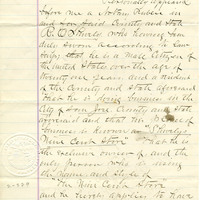 Personally appeared
before me a Notary Public in
and for said County and State
R. O. Shively who having been
duly sworn according to law
Says, that he is a male citizen of
the United States over the age of
Twenty one years and a resident
of the County and State aforesaid
that he is doing business in the
City of San Jose County and State
aforesaid and that the place of
business is known as "Shively's
Nine Cent Store" That he is
the exclusive owner of and the
only person who is using
the Name and Style of
The Nine Cent Store
and he hereby applies to have